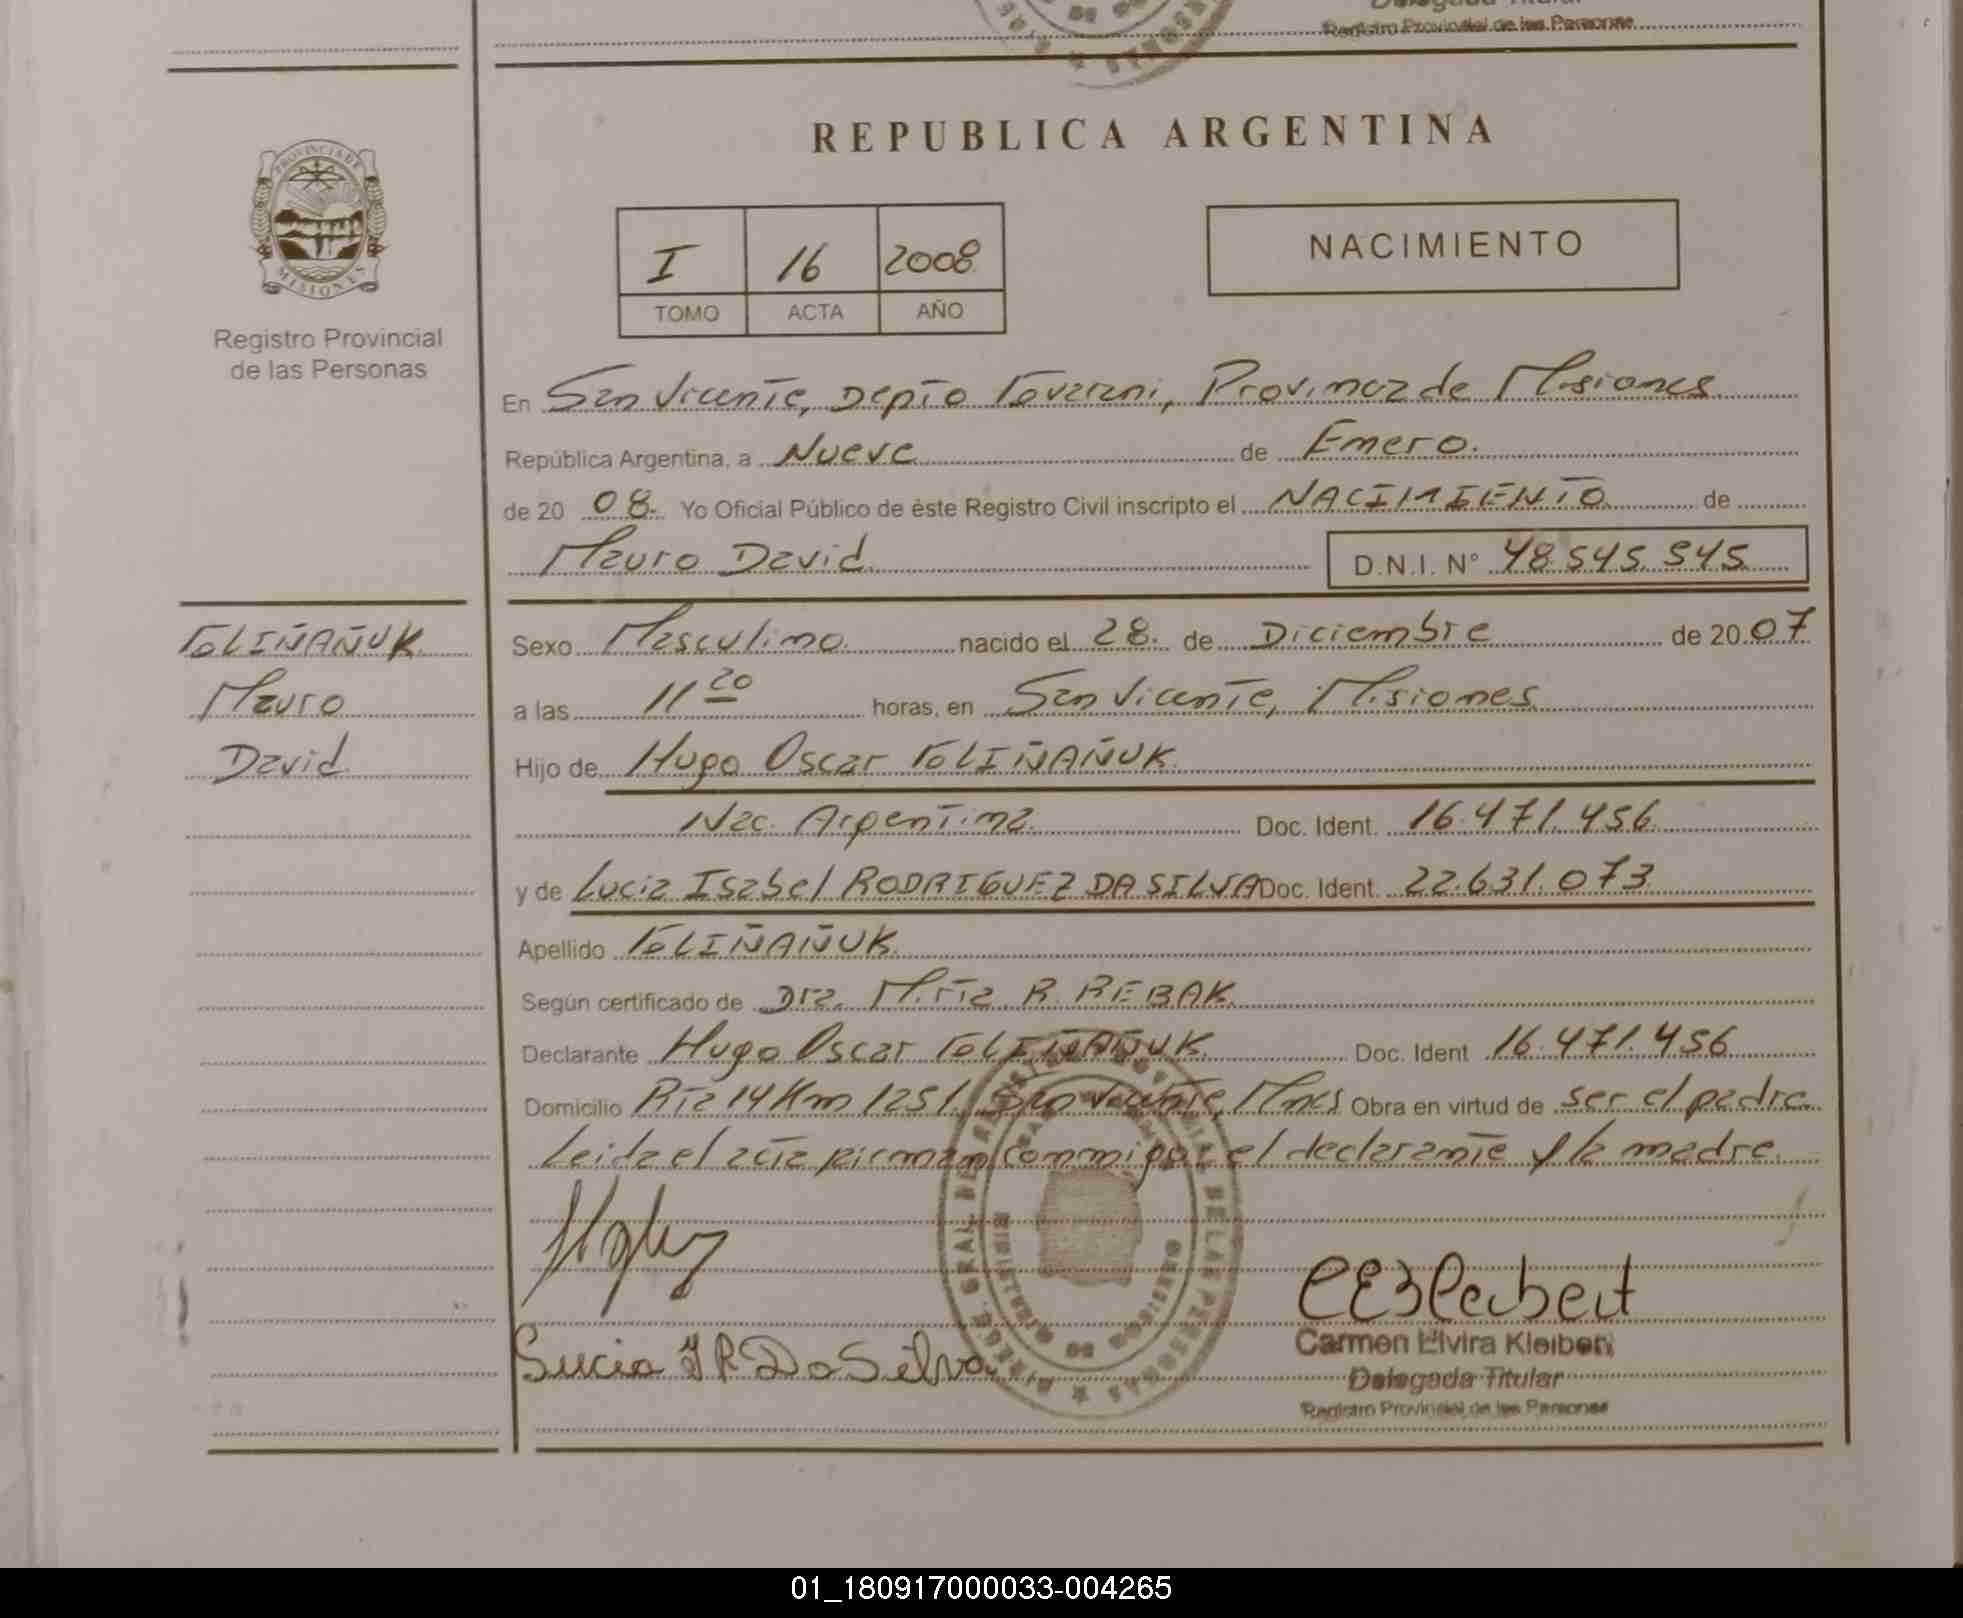 Registro Provincial de las Personas
REPUBLICA ARGENTINA
PROVINCIA DE
MISIONES
Registro Provincial
de las Personas
I 16 2008
TOMO ACTA AÑO
NACIMIENTO
En San Vicente, Depto Guarani, Provincia de Misiones
República Argentina, a Nueve de Enero.
de 20 08. Yo Oficial Público de éste Registro Civil inscripto el NACIMIENTO de
Mauro David D.N.I. Nº 48.545.545
Mauro
David
Sexo Masculino. nacido el 28. de Diciembre de 20 07
a las 11 20 horas, en San Vicente, Misiones
Hijo de Hugo Oscar
Nac. Argentina. Doc. Ident. 16.471.456
y de Lucia Isabel RODRIGUEZ DA SILVA Doc. Ident. 22.631.073
Apellido
Según certificado de Dra. Mirta R. REBAK
Declarante Hugo Oscar Doc. Ident 16.471.456
Domicilio Rta 14 Km 1251, San Vicente, Mnes Obra en virtud de ser el padre
Leida el acta firman conmigo el declarante y la madre.
Lucia I R Da Silva
Carmen Elvira Kleibert
Delegada Titular
Registro Provincial de las Personas
01_180917000033-004265